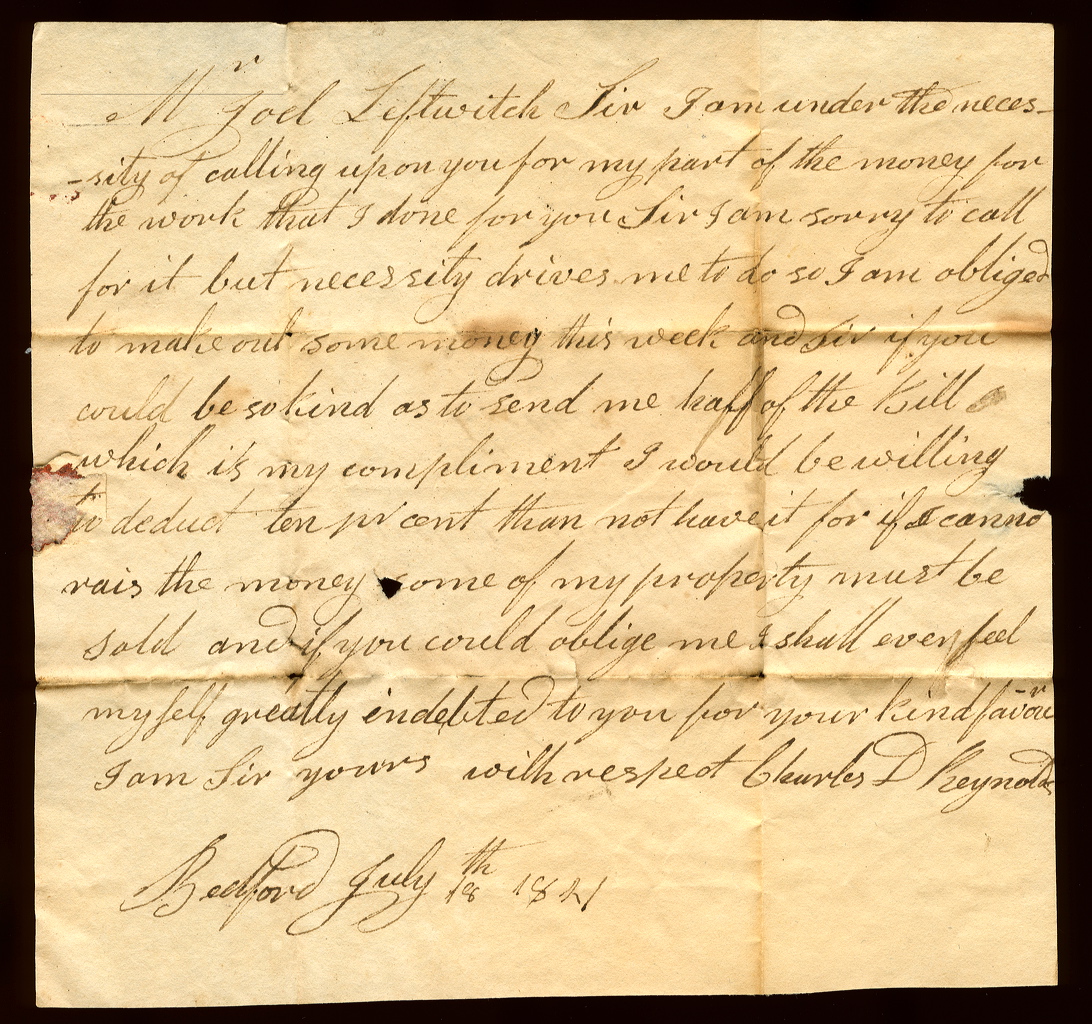 Mr Joel Leftwitch Sir I am under the neces-
-sity of calling upon you for my part of the money for
the work that I done for you Sir I am sorry to call
for it but necessity drives me to do so I am obliged
to make out some money this week and Sir if you
could be so kind as to send me haff of the Bill
which is my compliment I would be willing
to deduct ten pr cent than not have it for if I canno
rais the money some of my property must be
sold and if you could oblige me I shall ever feel
myself greatly indebted to you for your kind favour
I am Sir yours with respect Charles D Reynolds
Bedford July 18th 1821